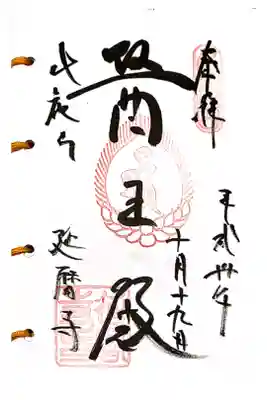 奉拝
平成卅年
十月十九日
醫王殿
比叡山
延暦寺